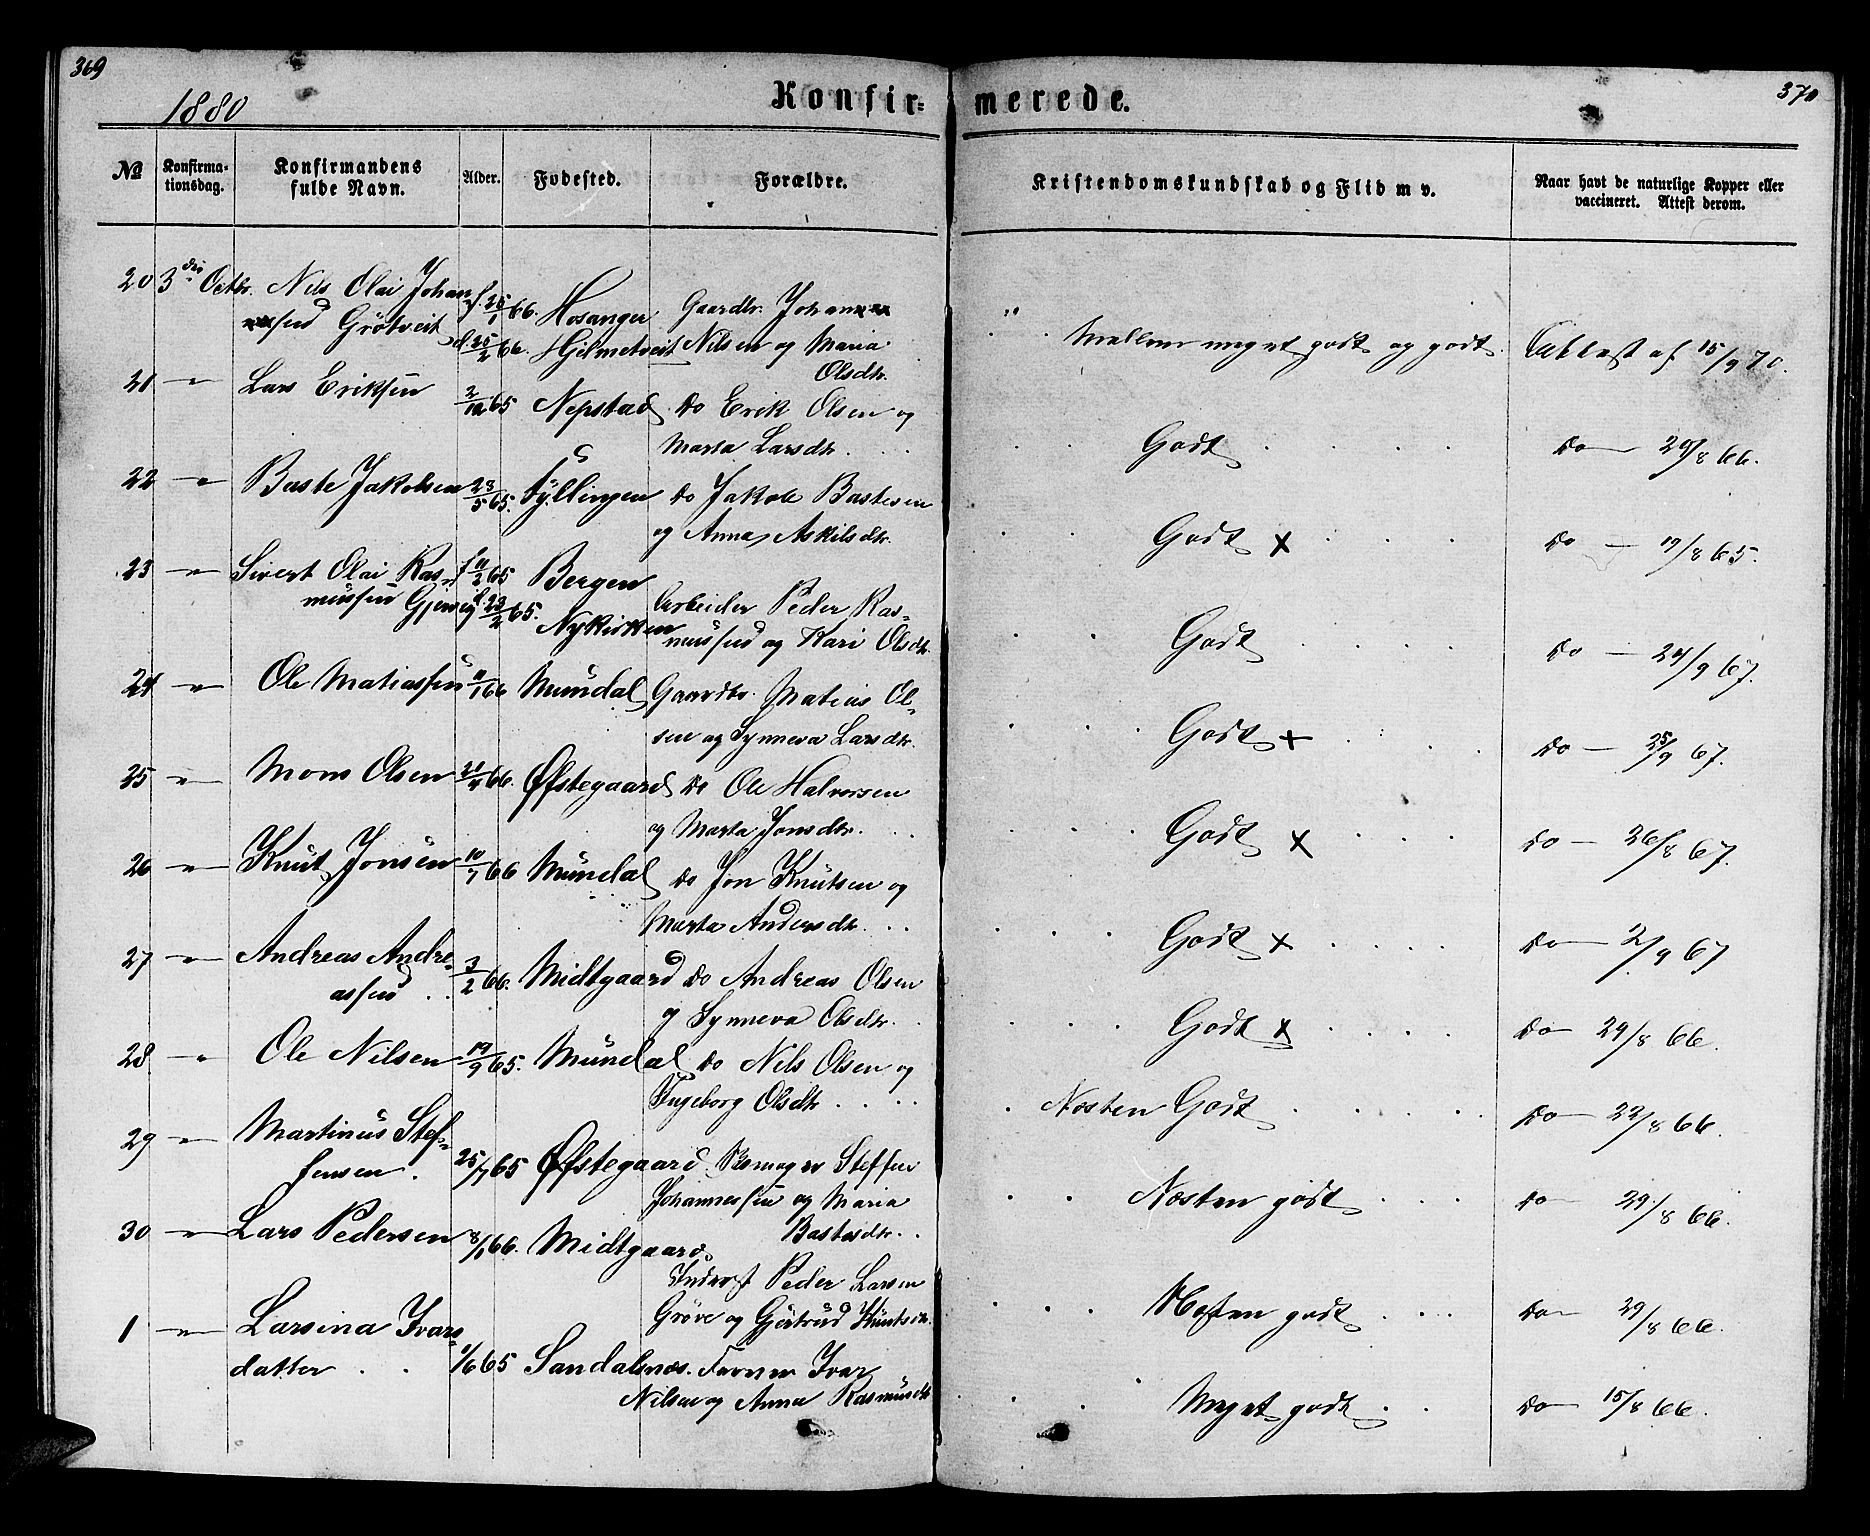 369
370
1880
Konfir= merede.
No
Konfirma-
tionsdag.
Konfirmandens
fulde Navn.
Alder.
Fødested.
Forældre.
Kristendomskundskab og Flid m v.
Naar havt de naturlige Kopper eller
vaccineret. Attest derom.
20 3die Octbr. Nils Olai Johan- f. 25/1 66. Hosanger Gaardbr. Johan
sen Grøtveit d. 25/2 66. Hjelmetveit Nilsen og Maria
Olsdtr.
Mellem meget godt og godt. Attest af 15/9 70.
21 -"- Lars Eriksen 2/12 65 Nepstad Do Erik Olsen og
Marta Larsdtr.
Godt Do 29/8 66.
22 -"- Baste Jakobsen 23/5 65. Fyllingen Do Jakob Bastesen
og Anna Askilsdtr.
Godt x Do - 19/8 65.
23 -"- Sivert Olai Ras- f. 11/2 65 Bergen
mussen Gjervig d. 23/2 65. Nykirken
Arbeider Peder Ras-
mussen og Kari Olsdtr.
Godt Do - 24/9 67.
24 -"- Ole Matiassen 11/1 66 Mundal Gaardbr. Matias Ol-
sen og Synneva Larsdtr.
Godt x Do - 25/9 67.
25 -"- Mons Olsen 21/4 66. Øfstegaard Do Ole Halvorsen
og Marta Jonsdtr.
Godt x Do - 26/8 67.
26 -"- Knut Jonsen 10/7 66 Mundal Do Jon Knutsen og
Marta Andersdtr.
Godt x Do - 2/9 67
27 -"- Andreas Andre- 3/2 66. Midtgaard Do Andreas Olsen
assen og Synneva Olsdtr.
Godt x Do - 29/8 66.
28 -"- Ole Nilsen 19/9 65. Mundal Do Nils Olsen og
Ingeborg Olsdtr
Næsten Godt Do - 22/8 66.
29 -"- Martinus Stef-
fensen. 25/7 65 Øfstegaard Steffen
Johannessen og Maria
Bastesdtr.
Næsten godt Do 29/8 66.
30 -"- Lars Pedersen 8/1 66. Midtgaard
Inderst Peder Larsen
Grøve og Gjertrud Knutsdtr.
Næsten godt Do 29/8 66.
1 -"- Larsina Ivars-
datter 1/6 65 Sandalsnæs. Ivar
Nilsen og Anna Rasmusdtr
Meget godt Do 15/8 66.